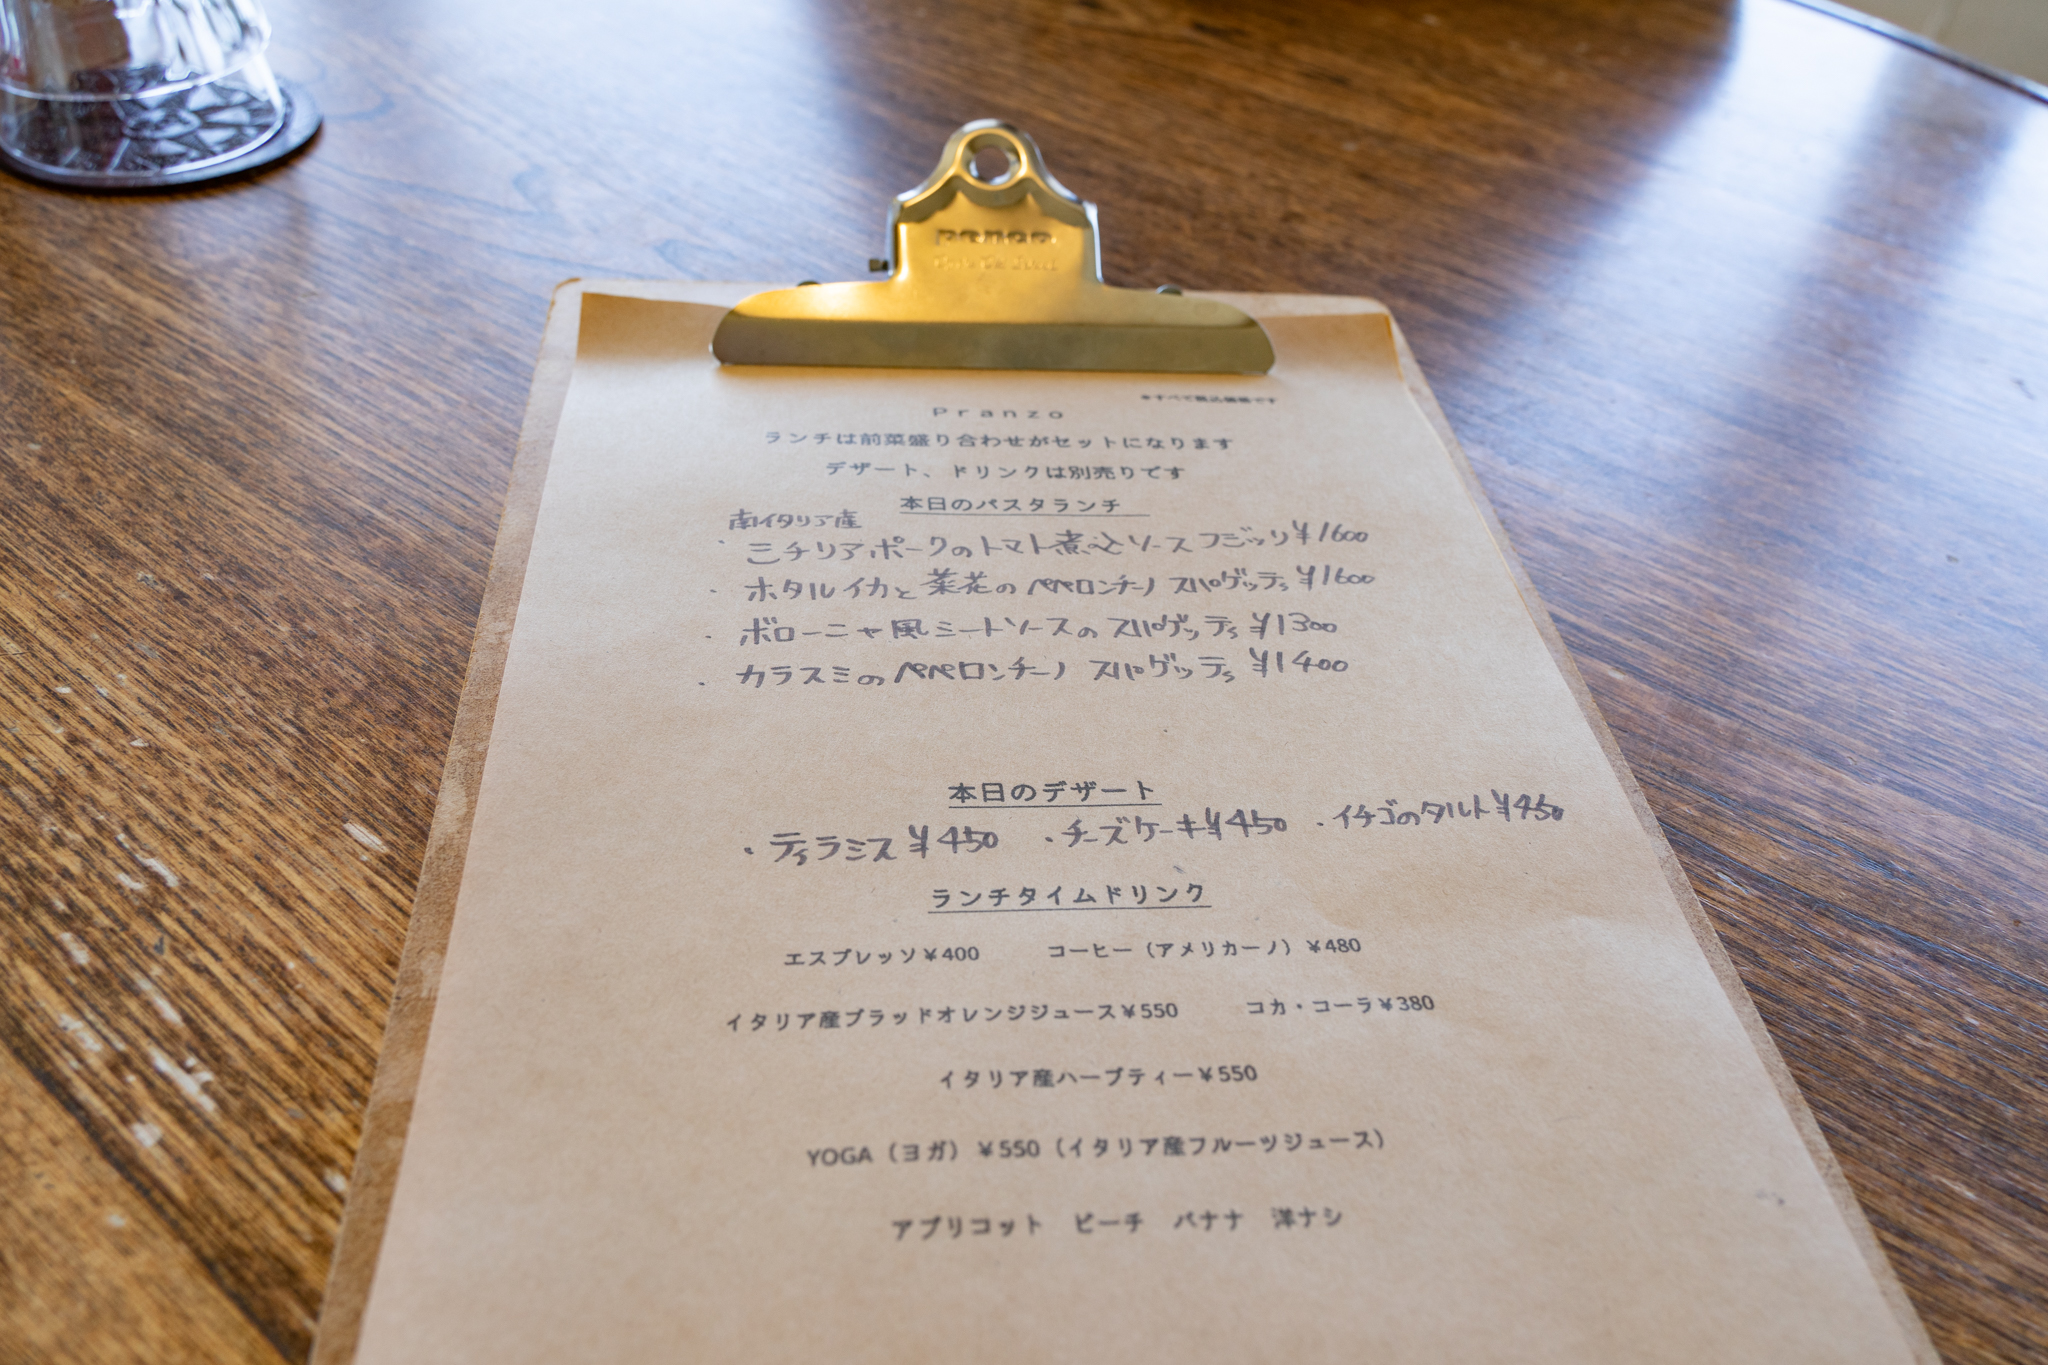 ※すべて税込価格です
Pranzo
ランチは前菜盛り合わせがセットになります
デザート、ドリンクは別売りです
本日のパスタランチ
南イタリア産
・ミチリアポークのトマト煮込ソース フジッリ¥1600
・ホタルイカと菜花のペペロンチーノ スパゲッティ¥1600
・ボローニャ風ミートソースのスパゲッティ¥1300
・カラスミのペペロンチーノ スパゲッティ¥1400
本日のデザート
・ティラミス¥450 ・チーズケーキ¥450 ・イチゴのタルト¥450
ランチタイムドリンク
エスプレッソ¥400 コーヒー（アメリカーノ）¥480
イタリア産ブラッドオレンジジュース¥550 コカ・コーラ¥380
イタリア産ハーブティー¥550
YOGA（ヨガ）¥550（イタリア産フルーツジュース）
アプリコット ピーチ バナナ 洋ナシ